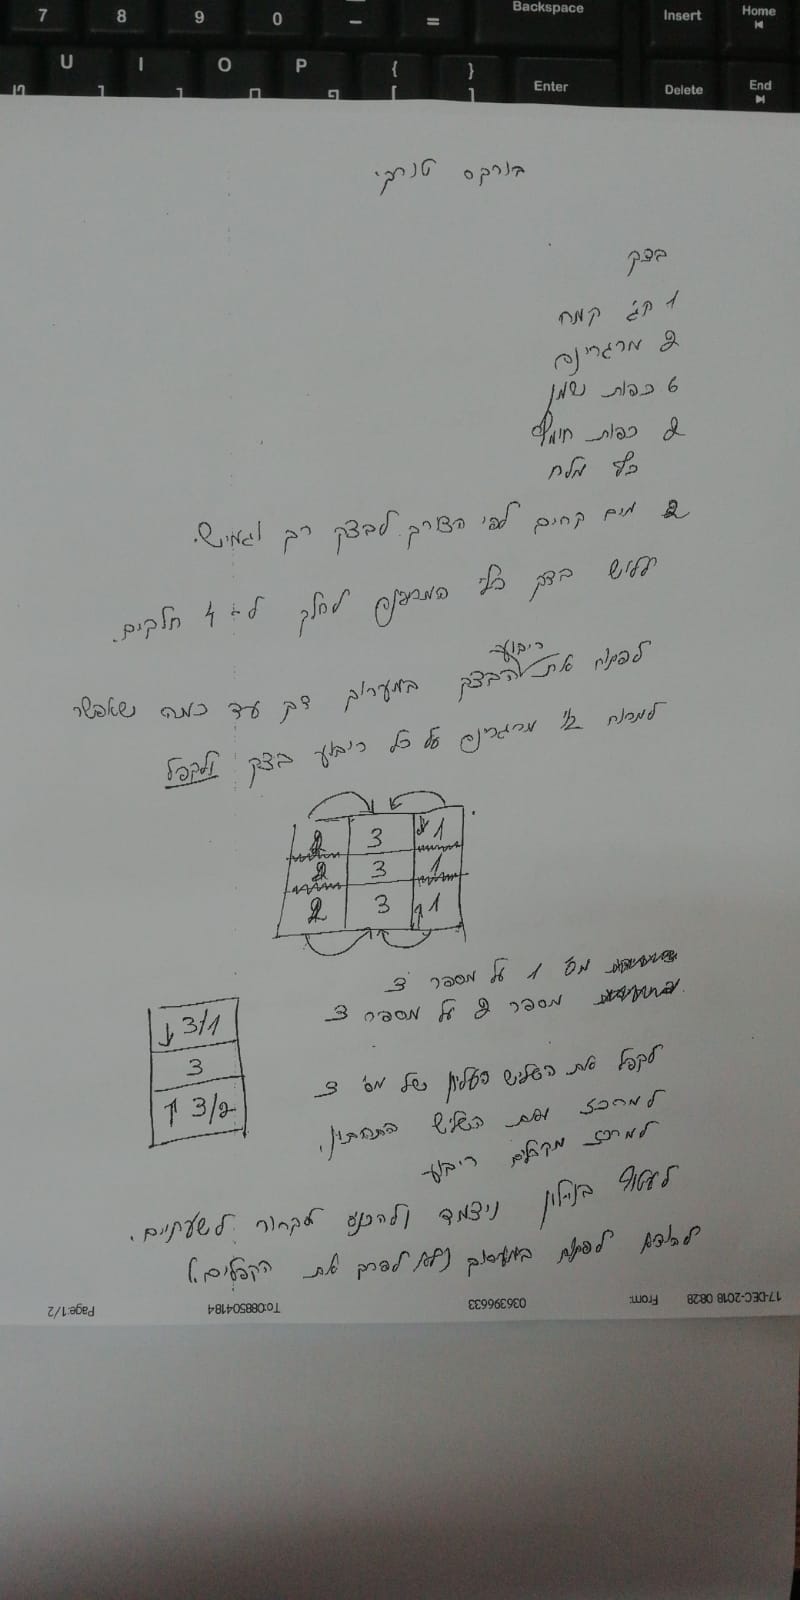 7 8 9 0 - = Backspace Insert Home
U I O P { [ } ] Enter Delete End
בורקס טורקי
בצק
1 קג קמח
2 מרגרינה
6 כפות שמן
2 כפות חומץ
כף מלח
מים קרים לפי הצורך לבצק רך וגמיש.
ללוש בצק בלי המרגרינה לחלק ל- 4 חלקים.
ריבוע
לפתוח את הבצק במערוך דק עד כמה שאפשר
למרוח 1/2 מרגרינה על כל ריבוע בצק ולקפל
2 3 1
2 3 1
2 3 1
מס' 1 על מספר 3
מספר 2 על מספר 3
3/1
3
3/2
לקפל את השליש העליון של מס' 3
למרכז ואת השליש התחתון.
למרכז מקבלים ריבוע
לעטוף בניילון ניצמד ולהכניס לקרור לשעתיים.
להוציא לפתוח במערוך ולא לפרק את הקפלים.
17-DEC-2018 08:28 From: 036396633 To:088504184 Page:1/2